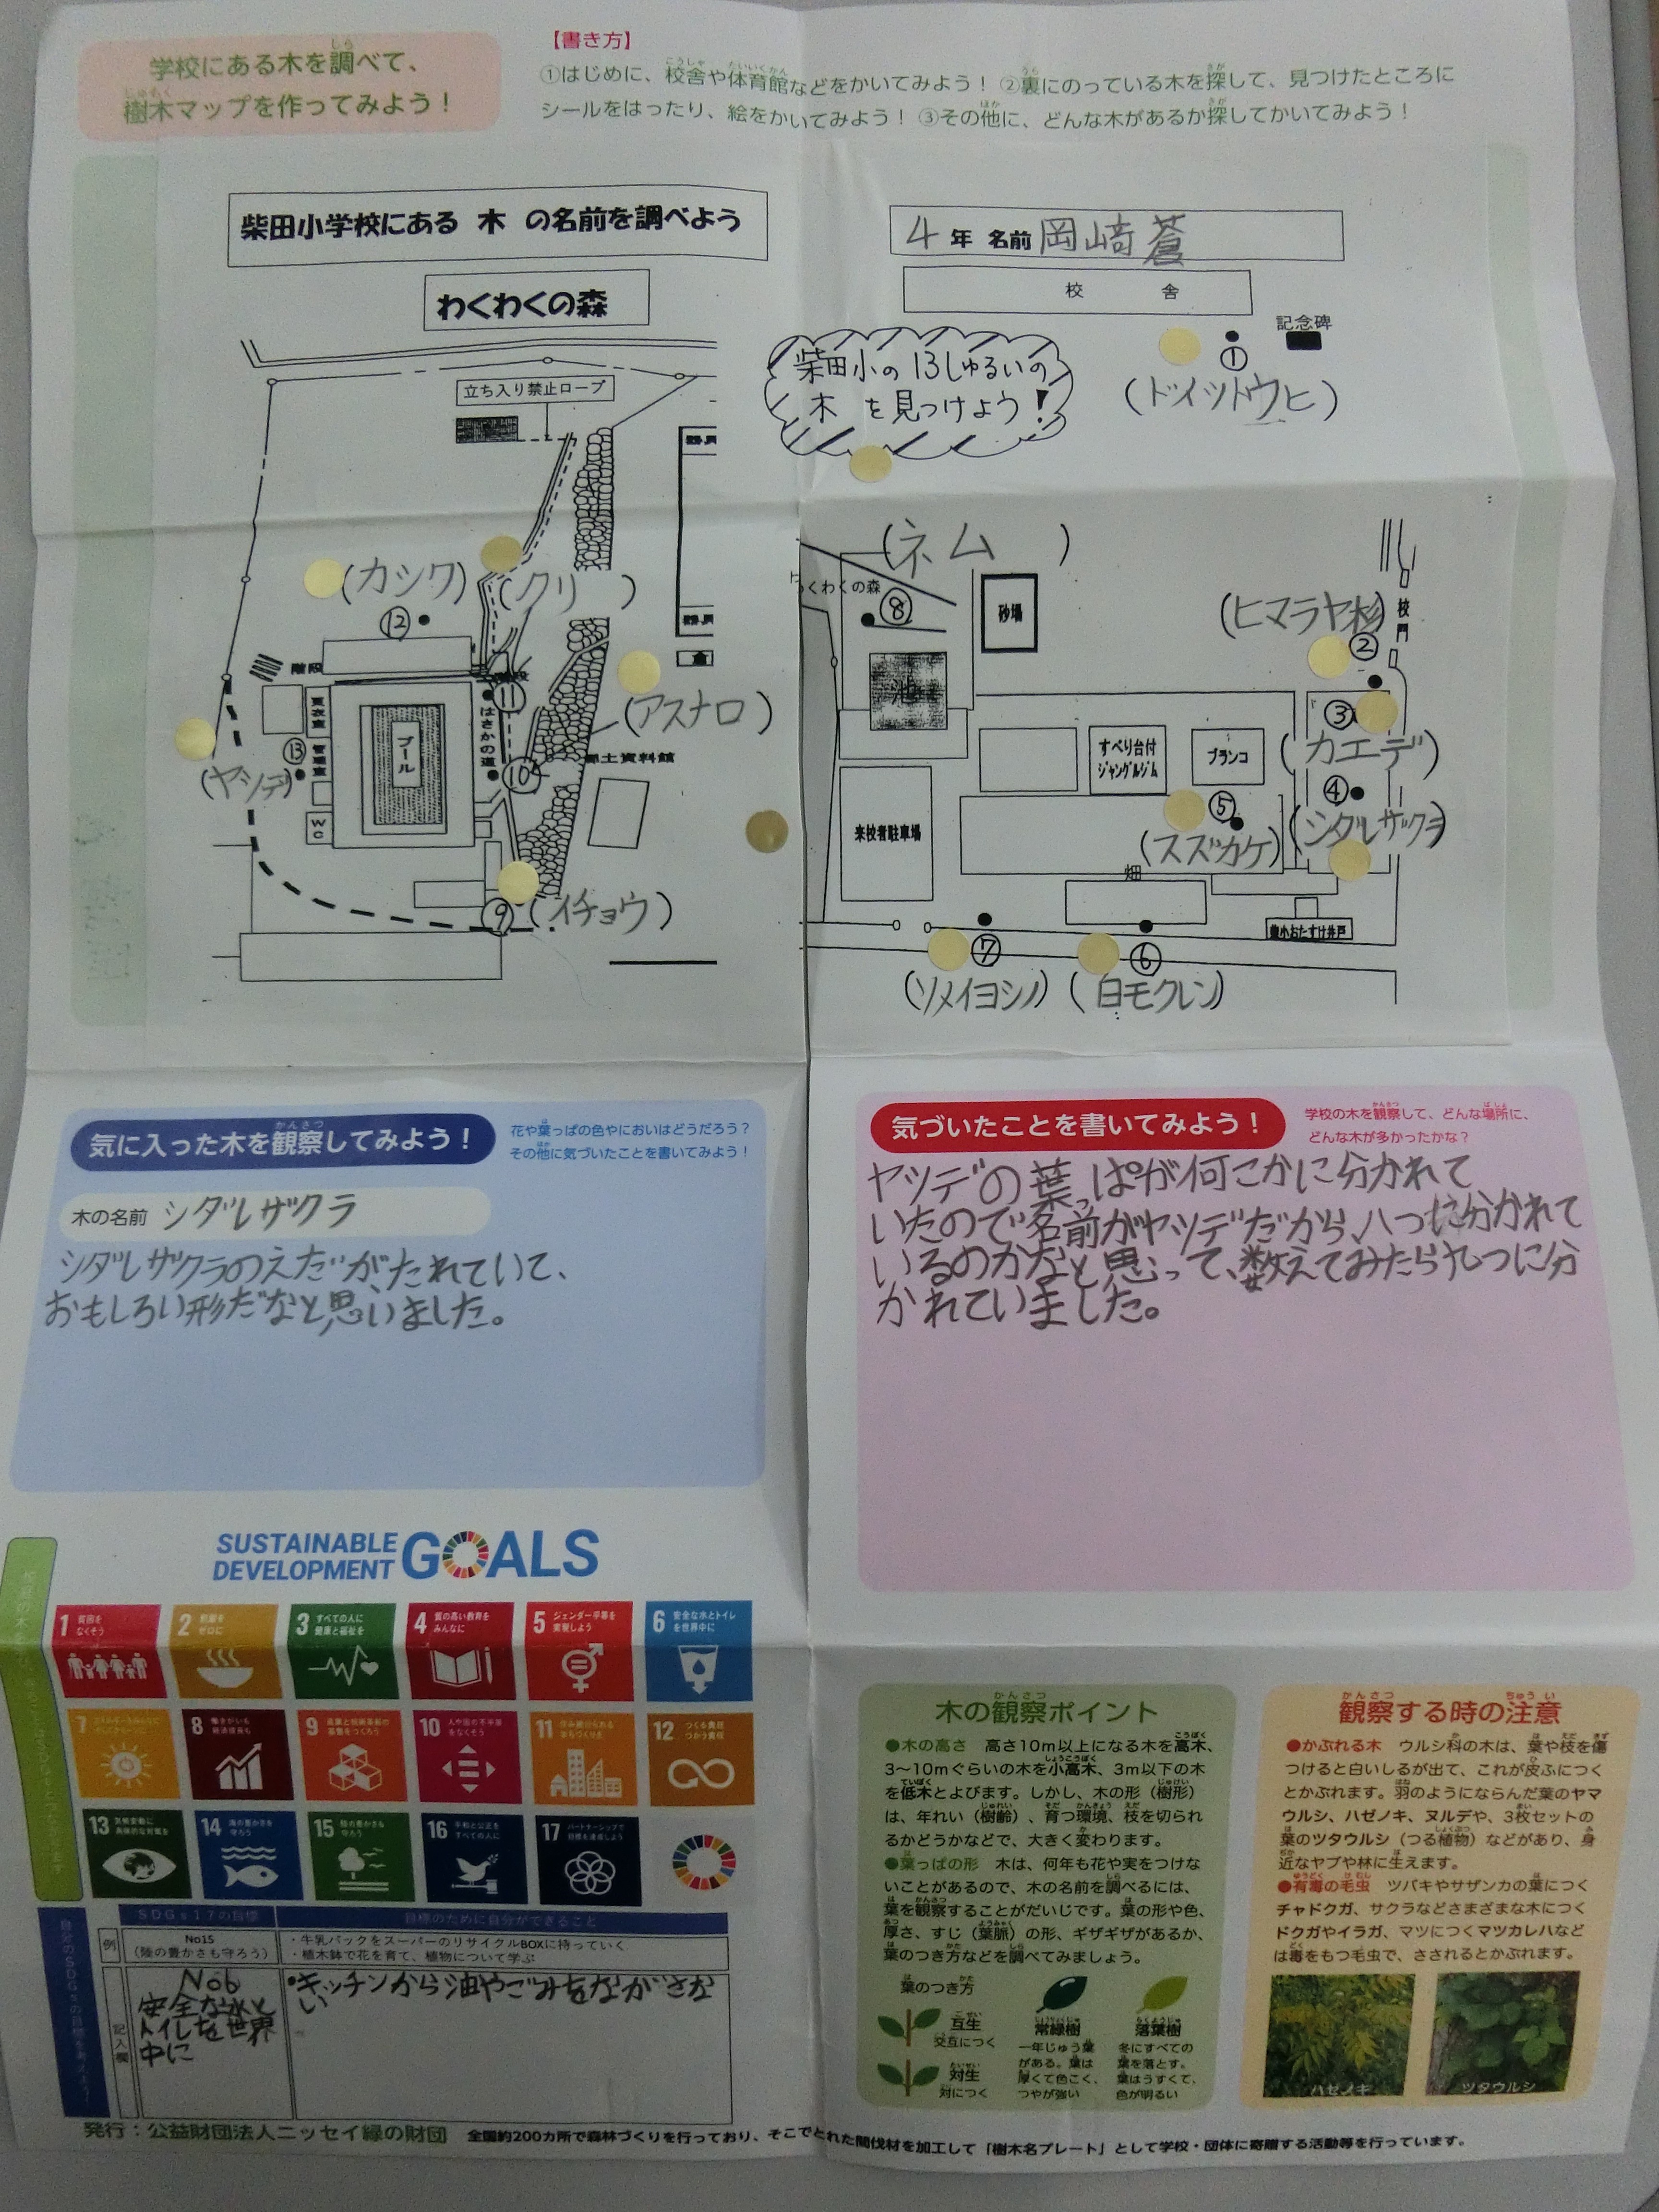 学校にある木を調べて、
樹木マップを作ってみよう！
【書き方】
①はじめに、校舎や体育館などをかいてみよう！ ②裏にのっている木を探して、見つけたところに
シールをはったり、絵をかいてみよう！ ③その他に、どんな木があるか探してかいてみよう！
柴田小学校にある 木 の名前を調べよう
4 年 名前 岡崎蒼
わくわくの森
校 舎
記念碑
①
(ドイツトウヒ)
柴田小の 13しゅるいの
木 を見つけよう！
立ち入り禁止ロープ
(カシワ)
(クリ )
⑫
階段
更衣室
管理室
WC
プール
はさかの道
⑪
(アスナロ)
⑬
(ヤツデ)
⑩
郷土資料館
⑨
(イチョウ)
(ネム )
わくわくの森
⑧
砂場
池
(ヒマラヤ杉)
校門
②
③
(カエデ)
すべり台付
ジャングルジム
ブランコ
④
(シダレザクラ)
⑤
(スズカケ)
来校者駐車場
畑
柴小おたすけ井戸
⑦
(ソメイヨシノ)
⑥
(白モクレン)
気に入った木を観察してみよう！
花や葉っぱの色やにおいはどうだろう？
その他に気づいたことを書いてみよう！
木の名前 シダレザクラ
シダレザクラのえだが、たれていて、
おもしろい形だなと思いました。
気づいたことを書いてみよう！
学校の木を観察して、どんな場所に、
どんな木が多かったかな？
ヤツデの葉っぱが何こかに分かれて
いたので名前がヤツデだから、八つに分かれて
いるのかなと思って、数えてみたら九つに分
かれていました。
SUSTAINABLE
DEVELOPMENT
GOALS
1 貧困を
なくそう
2 飢餓を
ゼロに
3 すべての人に
健康と福祉を
4 質の高い教育を
みんなに
5 ジェンダー平等を
実現しよう
6 安全な水とトイレ
を世界中に
7 エネルギーをみんなに
そしてクリーンに
8 働きがいも
経済成長も
9 産業と技術革新の
基盤をつくろう
10 人や国の不平等
をなくそう
11 住み続けられる
まちづくりを
12 つくる責任
つかう責任
13 気候変動に
具体的な対策を
14 海の豊かさを
守ろう
15 陸の豊かさも
守ろう
16 平和と公正を
すべての人に
17 パートナーシップで
目標を達成しよう
自分のSDGsの目標を考えよう！
SDGs17の目標
目標のために自分ができること
例
No15
(陸の豊かさも守ろう)
・牛乳パックをスーパーのリサイクルBOXに持っていく
・植木鉢で花を育て、植物について学ぶ
記入欄
No6
安全な水と
トイレを世界
中に
・キッチンから油やごみをながさな
い
木の観察ポイント
●木の高さ 高さ10m以上になる木を高木、
3〜10mぐらいの木を小高木、3m以下の木
を低木とよびます。しかし、木の形（樹形）
は、年れい（樹齢）、育つ環境、枝を切られ
るかどうかなどで、大きく変わります。
●葉っぱの形 木は、何年も花や実をつけな
いことがあるので、木の名前を調べるには、
葉を観察することがだいじです。葉の形や色、
厚さ、すじ（葉脈）の形、ギザギザがあるか、
葉のつき方などを調べてみましょう。
葉のつき方
互生
交互につく
対生
対につく
常緑樹
一年じゅう葉
がある。葉は
厚くて色こく、
つやが強い
落葉樹
冬にすべての
葉を落とす。
葉はうすくて、
色が明るい
観察する時の注意
●かぶれる木 ウルシ科の木は、葉や枝を傷
つけると白いしるが出て、これが皮ふにつく
とかぶれます。羽のようにならんだ葉のヤマ
ウルシ、ハゼノキ、ヌルデや、3枚セットの
葉のツタウルシ（つる植物）などがあり、身
近なヤブや林に生えます。
●有毒の毛虫 ツバキやサザンカの葉につく
チャドクガ、サクラなどさまざまな木につく
ドクガやイラガ、マツにつくマツカレハなど
は毒をもつ毛虫で、さされるとかぶれます。
ハゼノキ
ツタウルシ
発行：公益財団法人ニッセイ緑の財団 全国約200カ所で森林づくりを行っており、そこでとれた間伐材を加工して「樹木名プレート」として学校・団体に寄贈する活動等を行っています。